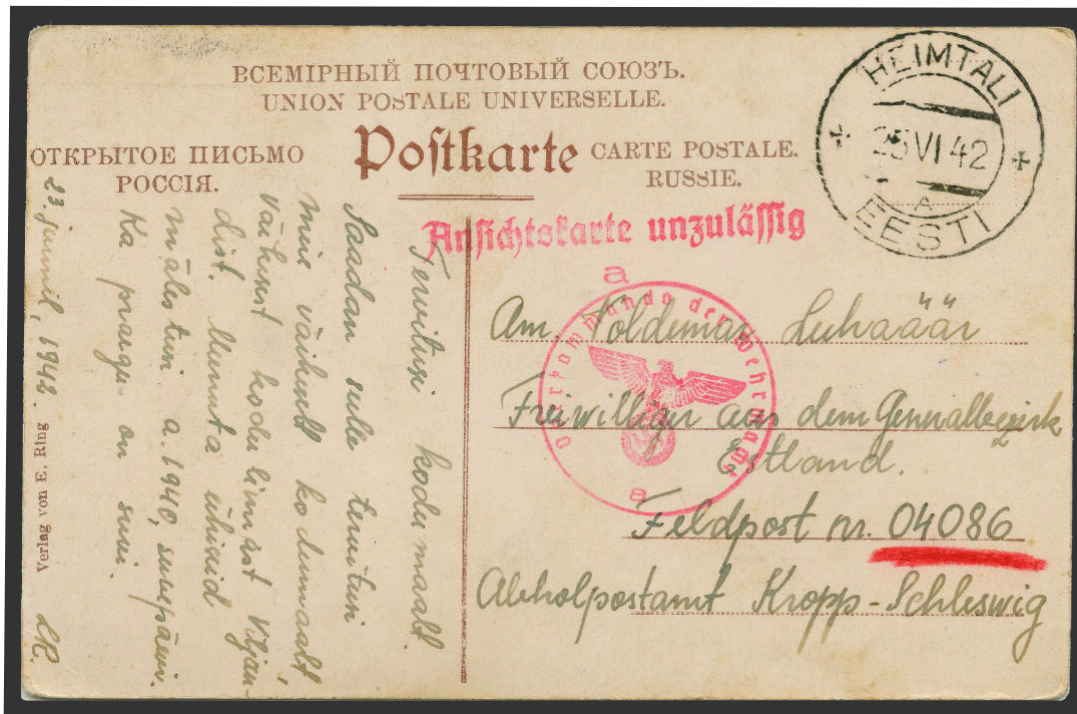 ВСЕМІРНЫЙ ПОЧТОВЫЙ СОЮЗЪ.
UNION POSTALE UNIVERSELLE.
ОТКРЫТОЕ ПИСЬМО
РОССІЯ.
Postkarte
CARTE POSTALE.
RUSSIE.
HEIMTALI
25 VI 42
A
EESTI
Ansichtskarte unzulässig
a
Oberkommando der Wehrmacht
e
Am. Voldemar Luhaäär
Freiwilliger aus dem Generalbezirk
Estland.
Feldpost nr. 04086
Abholpostamt Kropp-Schleswig
Tervitusi kodumaalt.
Saadan sulle tervitusi
meie väikesest kodumaalt,
väikesest kodulinnast Viljan-
dist. Meenuta ühiseid
mälestusi a. 1940, suvepäevi.
Ka praegu on suvi.
23. juunil, 1942.
Verlag von E. Ring